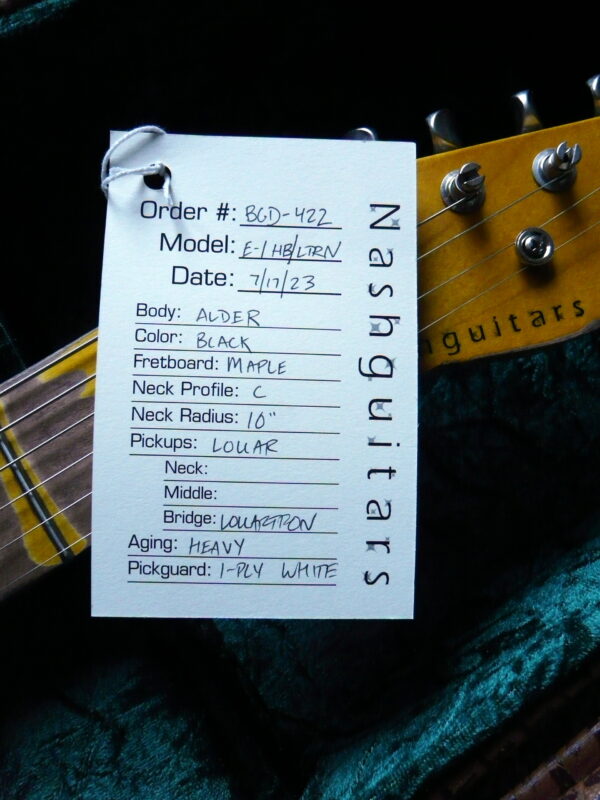 Order #: BGD-422
Model: E-1 HB/LTRN
Date: 7/17/23
Body: ALDER
Color: BLACK
Fretboard: MAPLE
Neck Profile: C
Neck Radius: 10"
Pickups: LOLLAR
Neck:
Middle:
Bridge: LOLLARTRON
Aging: HEAVY
Pickguard: 1-PLY WHITE
Nashguitars
guitars